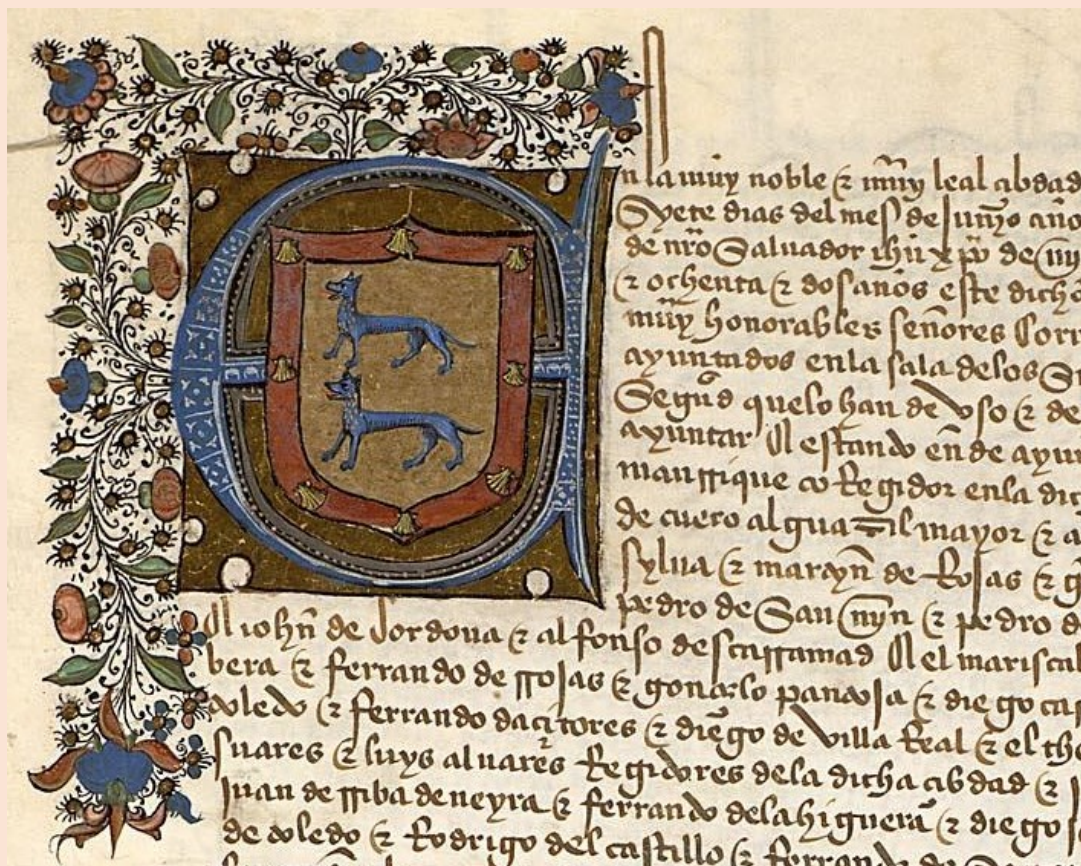 En la muy noble & muy leal cibdad
Syete dias del mes de junyo año
de nr̃o Saluador ihũ xp̃o de mj
& ochenta & dos años este dicho
muy honorables señores Corr
ayuntados en la sala delos
Segũd quelo han de vso & de
ayuntar estando ende ayun
manrrique coRegidor enla dic
de cuero alguazil mayor & a
sylua & martyñ de Rojas & g
pedro de San mỹn & pedro d
iohñ de Cordoua & alfonso de el mariscal
bera & ferrando de rrojas & gonçalo pantoja & diego
toledo & ferrando & diego de villa Real & el the
suares & luys aluares Regidores dela dicha cibdad &
juan de rriba de neyra & ferrando dela higuera & diego
de toledo & Rodrigo del castillo & ferrando